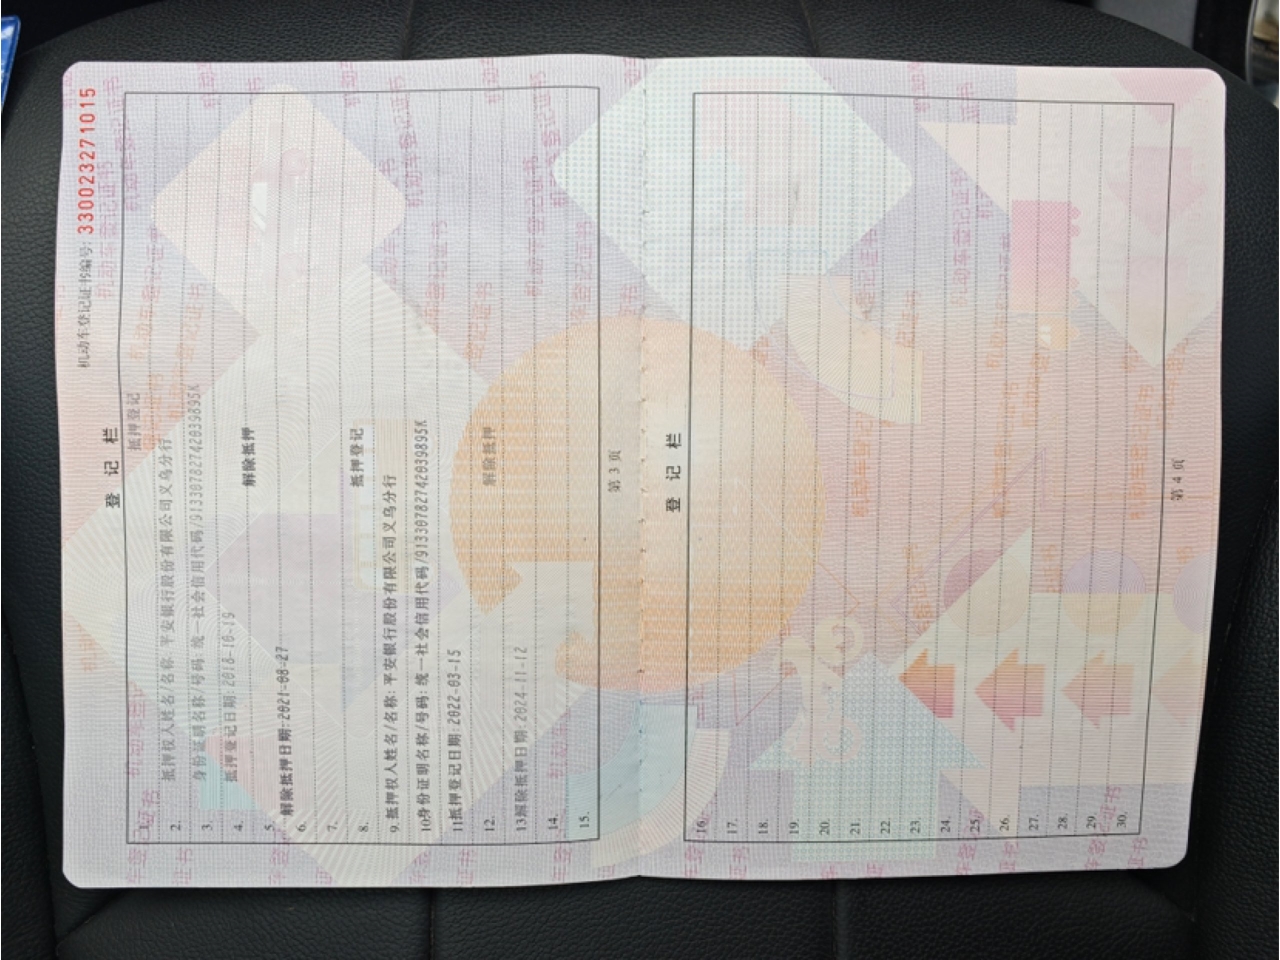 机动车登记证书编号: 330023271015
登 记 栏
1.
抵押登记
2. 抵押权人姓名/名称: 平安银行股份有限公司义乌分行
3. 身份证明名称/号码: 统一社会信用代码/91330782742039895K
4. 抵押登记日期: 2018-10-19
5. 解除抵押
6. 解除抵押日期: 2021-08-27
7.
8. 抵押登记
9. 抵押权人姓名/名称: 平安银行股份有限公司义乌分行
10. 身份证明名称/号码: 统一社会信用代码/91330782742039895K
11. 抵押登记日期: 2022-03-15
12. 解除抵押
13. 解除抵押日期: 2024-11-12
14.
15.
第 3 页
登 记 栏
16.
17.
18.
19.
20.
21.
22.
23.
24.
25.
26.
27.
28.
29.
30.
第 4 页